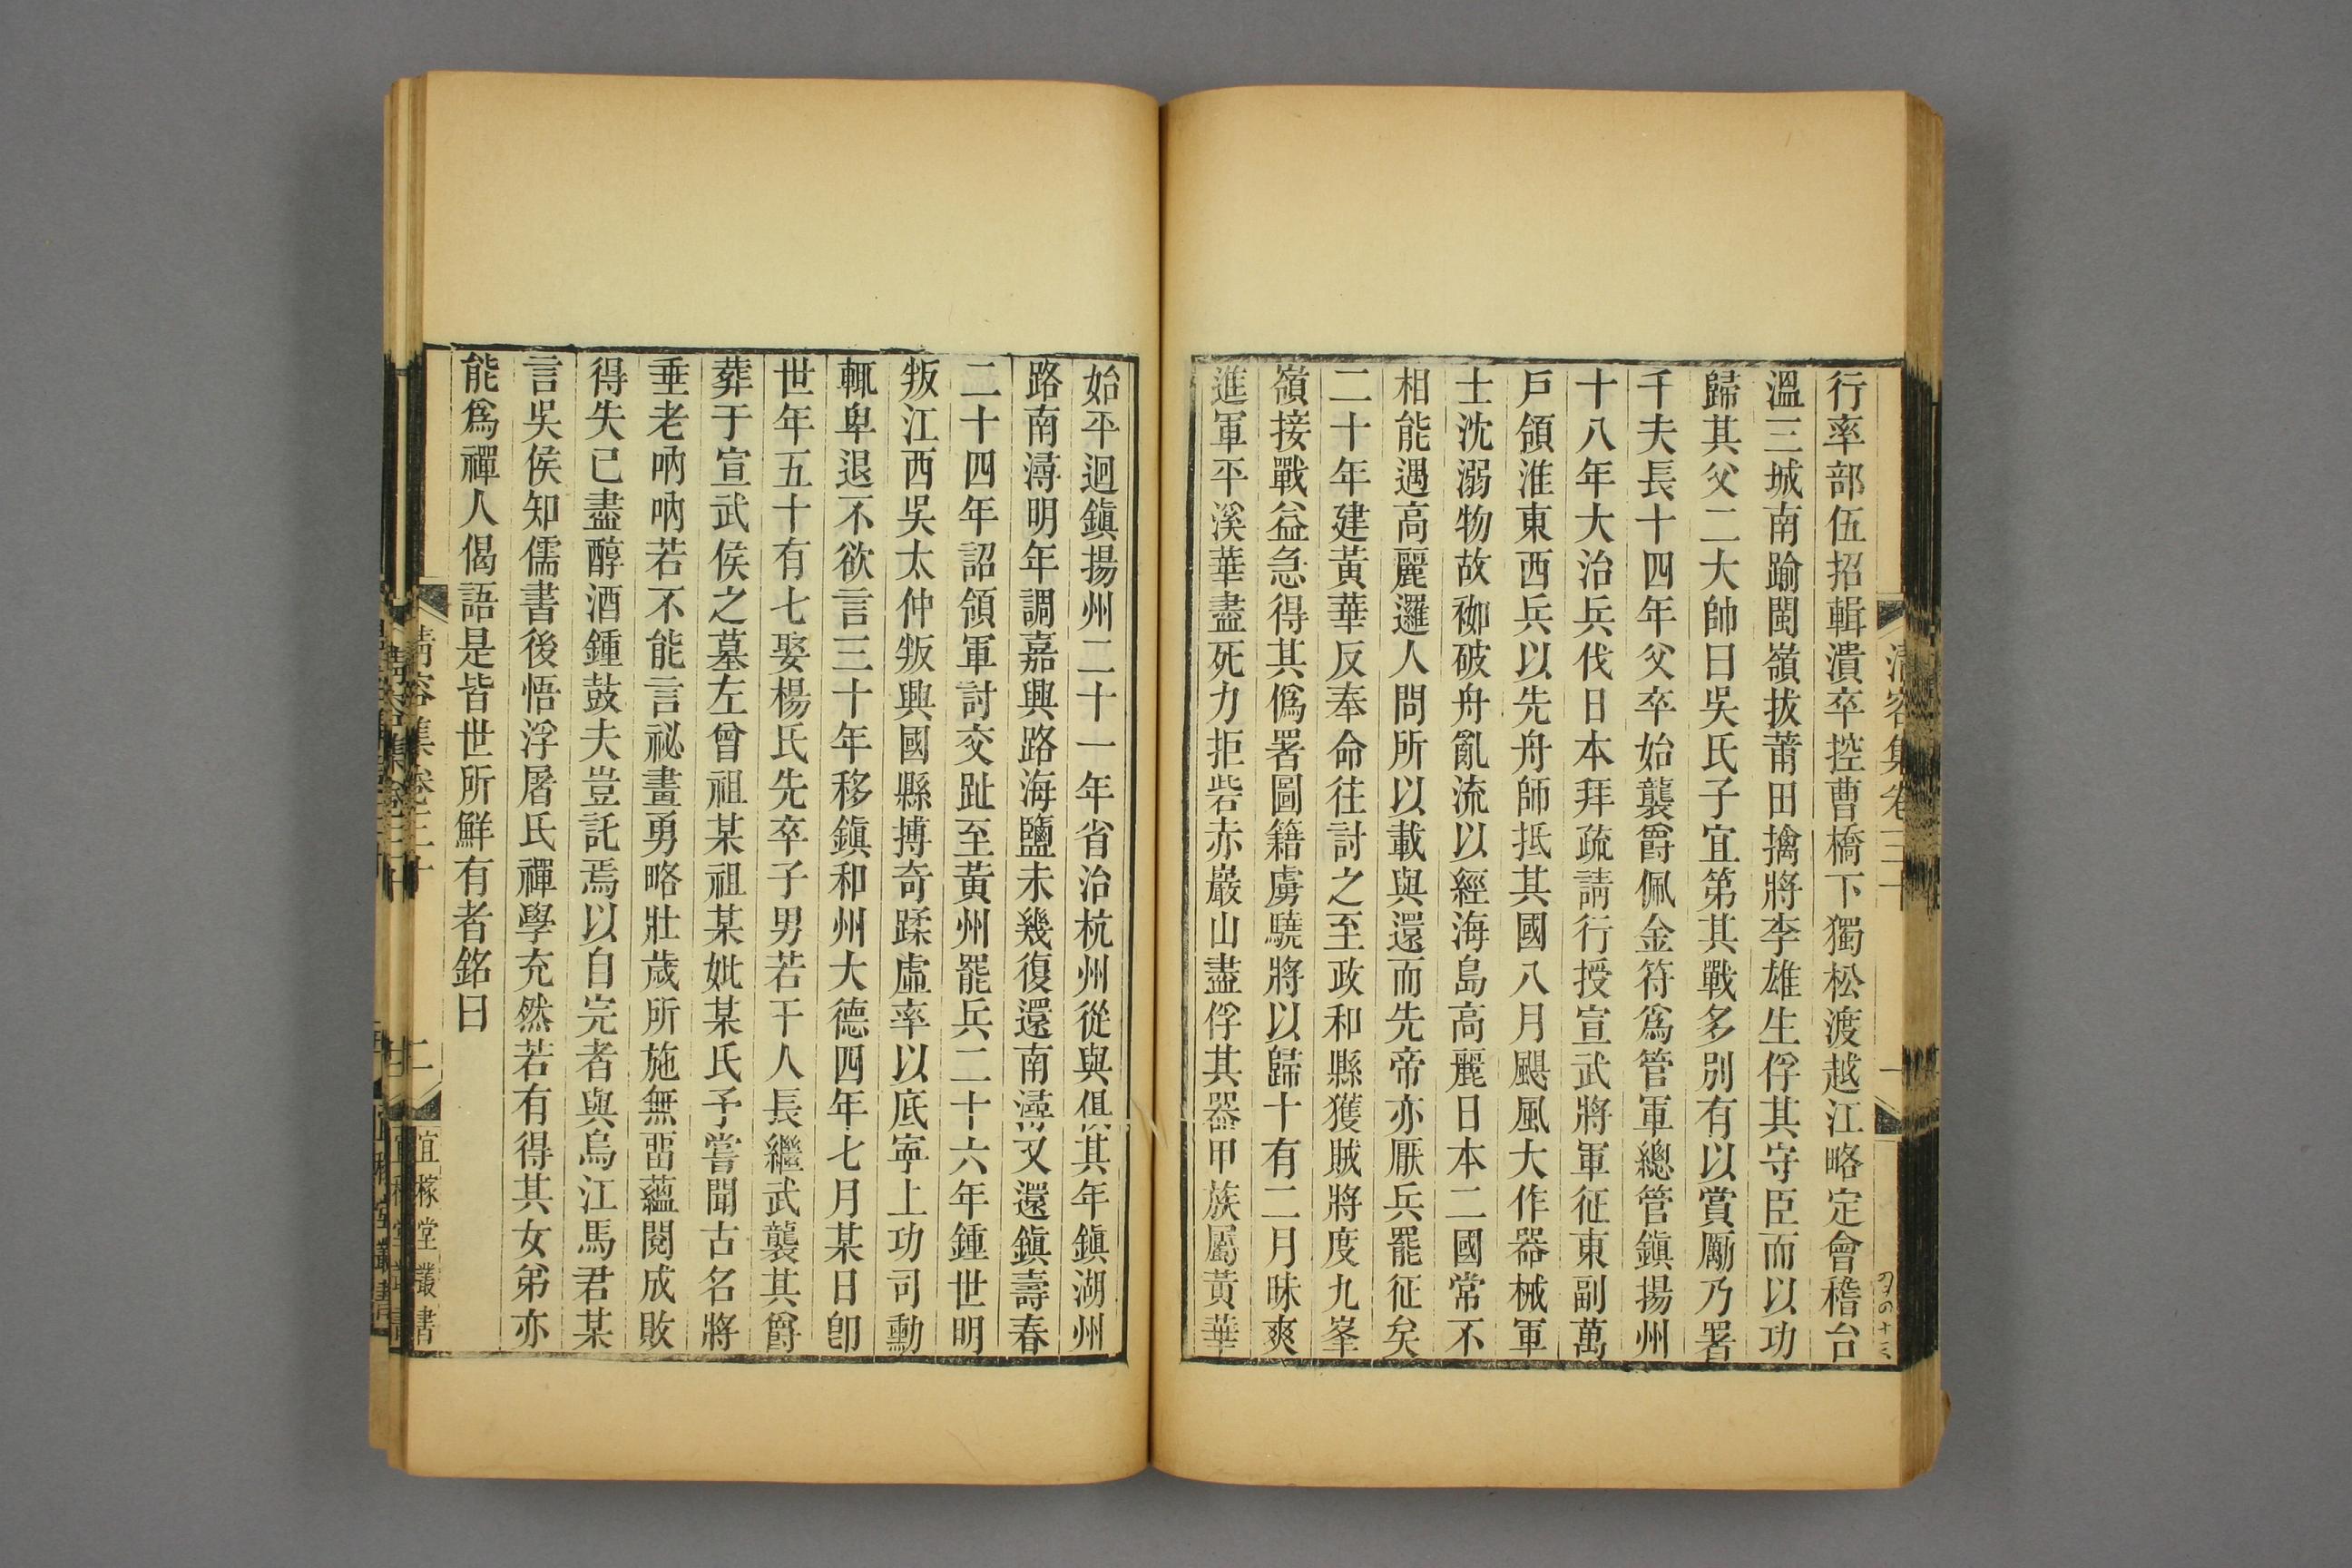 清容集卷三十 一
行率部伍招輯潰卒控曹橋下獨松渡越江略定會稽台
溫三城南踰閩嶺拔莆田擒將李雄生俘其守臣而以功
歸其父二大帥曰吳氏子宜第其戰多別有以賞勵乃署
千夫長十四年父卒始襲爵佩金符爲管軍總管鎭揚州
十八年大治兵伐日本拜疏請行授宣武將軍征東副萬
戶領淮東西兵以先舟師抵其國八月颶風大作器械軍
士沈溺物故栁破舟亂流以經海島高麗日本二國常不
相能遇高麗邏人問所以載與還而先帝亦厭兵罷征矣
二十年建黃華反奉命往討之至政和縣獲賊將度九峯
嶺接戰益急得其僞署圖籍虜驍將以歸十有二月昧爽
進軍平溪華盡死力拒砦赤巖山盡俘其器甲族屬黃華
始平迴鎭揚州二十一年省治杭州從與俱其年鎭湖州
路南潯明年調嘉興路海鹽未幾復還南潯又還鎭壽春
二十四年詔領軍討交趾至黃州罷兵二十六年鍾世明
叛江西吳太仲叛興國縣搏奇蹂虛率以底寧上功司勳
輒卑退不欲言三十年移鎭和州大德四年七月某日卽
世年五十有七娶楊氏先卒子男若干人長繼武襲其爵
葬于宣武侯之墓左曾祖某祖某妣某氏予嘗聞古名將
垂老吶吶若不能言祕畫勇略壯歲所施無畱蘊閱成敗
得失已盡醇酒鍾鼓夫豈託焉以自完者與烏江馬君某
言吳侯知儒書後悟浮屠氏禪學充然若有得其女弟亦
能爲禪人偈語是皆世所鮮有者銘曰
清容集卷三十 二 宜稼堂叢書